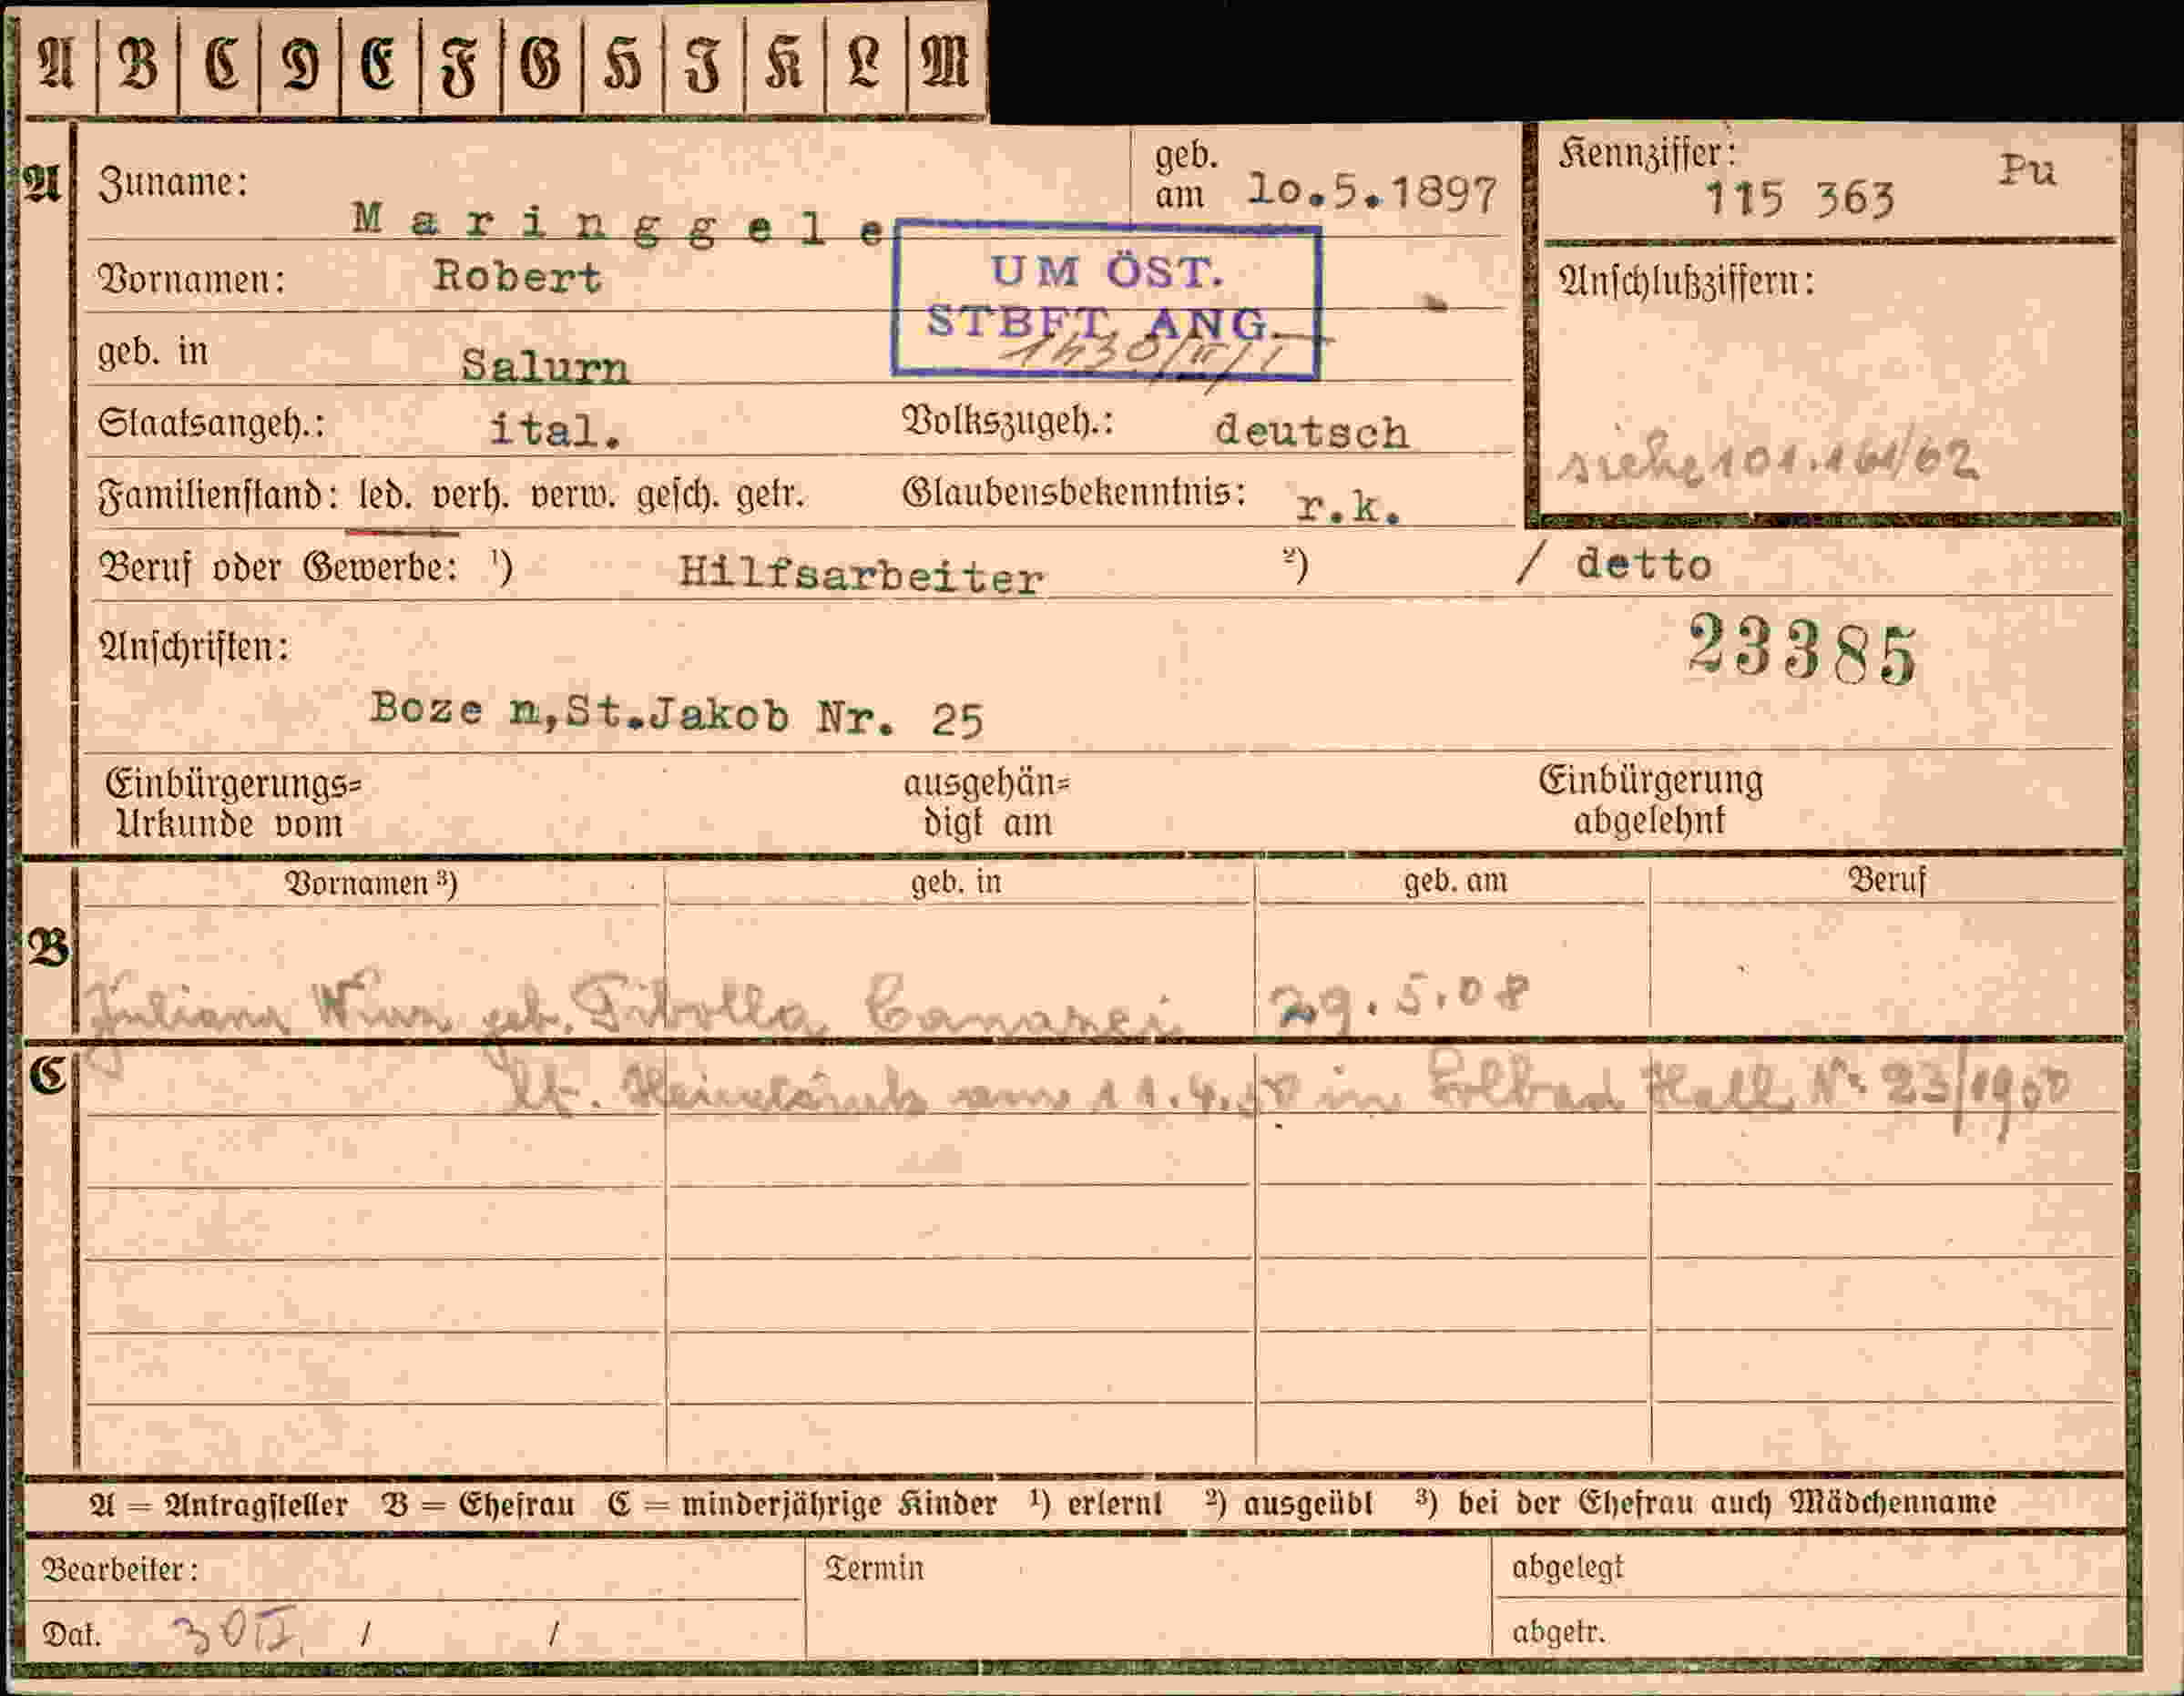 A B C D E F G H I K L M
A Zuname: Maringgele geb. am 10.5.1897 Kennziffer: 115 363 Pu
Vornamen: Robert
UM ÖST.
STBFT. ANG.
Anschlußziffern:
geb. in Salurn
Staatsangeh.: ital. Volkszugeh.: deutsch
siehe 101.161/62
Familienstand: led. verh. verw. gesch. getr. Glaubensbekenntnis: r.k.
Beruf oder Gewerbe: ¹) Hilfsarbeiter ²) / detto
Anschriften: 23385
Boze n,St.Jakob Nr. 25
Einbürgerungs= ausgehän= Einbürgerung
Urkunde vom digt am abgelehnt
Vornamen ³) geb. in geb. am Beruf
B
Juliana geb. Tibolla Canazei 29.5.08
C
lt. am 11.4. in Solbad Hall Nr 23/1950
A = Antragsteller B = Ehefrau C = minderjährige Kinder ¹) erlernt ²) ausgeübt ³) bei der Ehefrau auch Mädchenname
Bearbeiter: Termin abgelegt
Dat. / / abgetr.